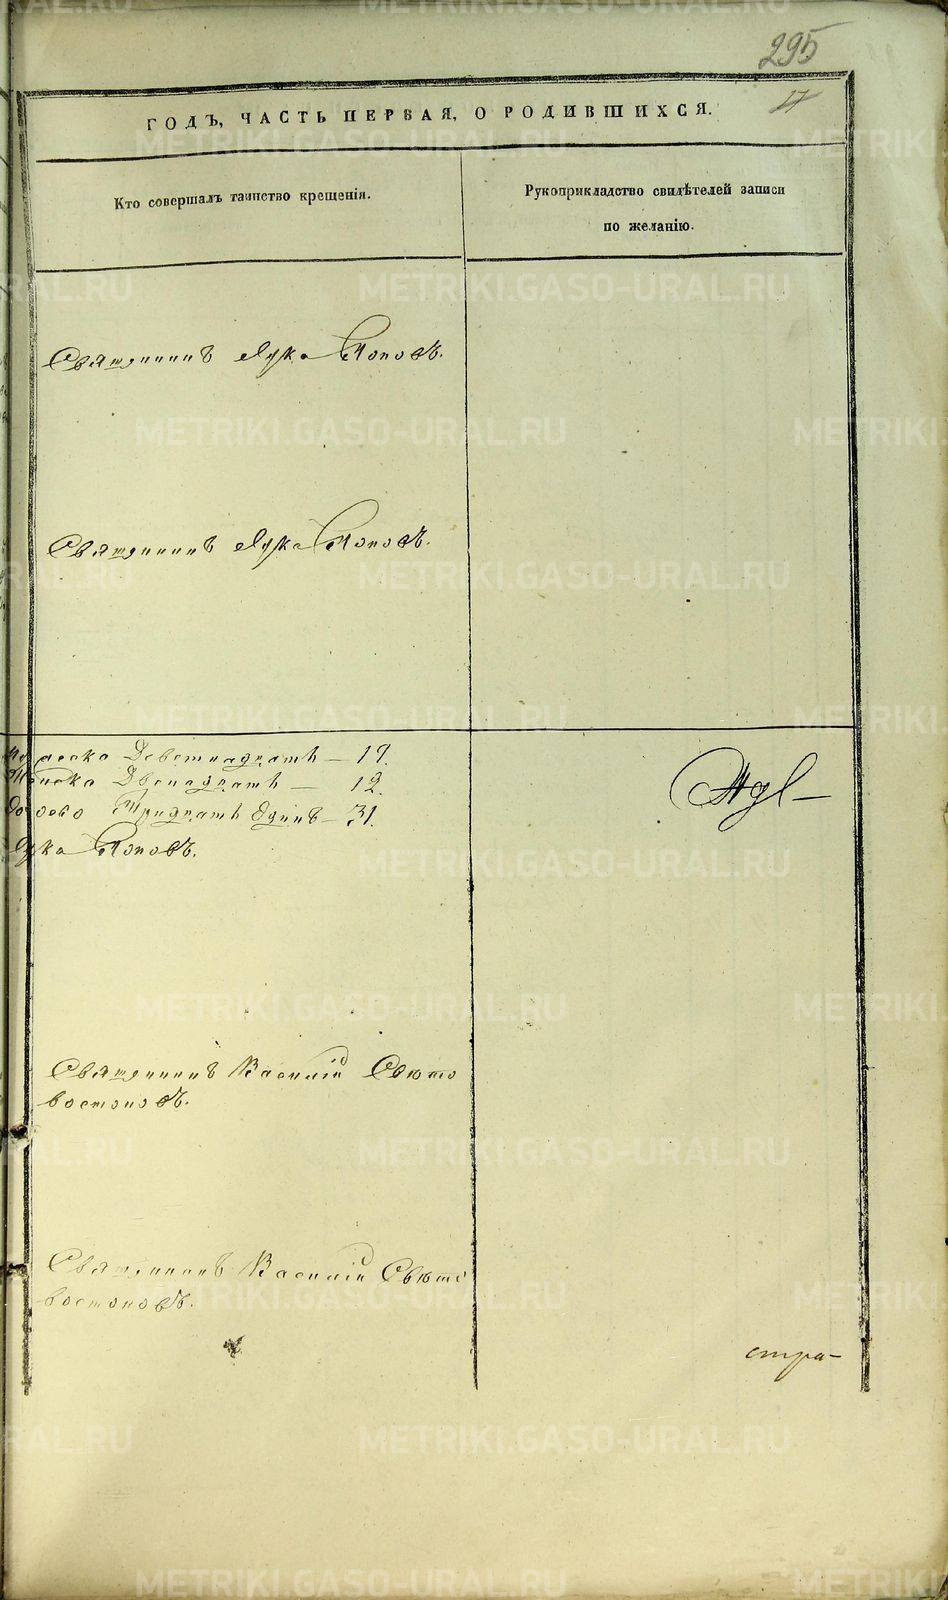 295
17
ГОДЪ, ЧАСТЬ ПЕРВАЯ, О РОДИВШИХСЯ.
Кто совершалъ таинство крещенія.
Рукоприкладство свидѣтелей записи
по желанію.
Священникъ Лука Поповъ.
Священникъ Лука Поповъ.
мужеска Девятнадцать — 19.
Женска Двенадцать — 12.
обоего Тридцать Одинъ — 31.
Лука Поповъ.
Священникъ Василій Свѣто
востоковъ.
Священникъ Василій Свѣто
востоковъ.
стра-
METRIKI.GASO-URAL.RU